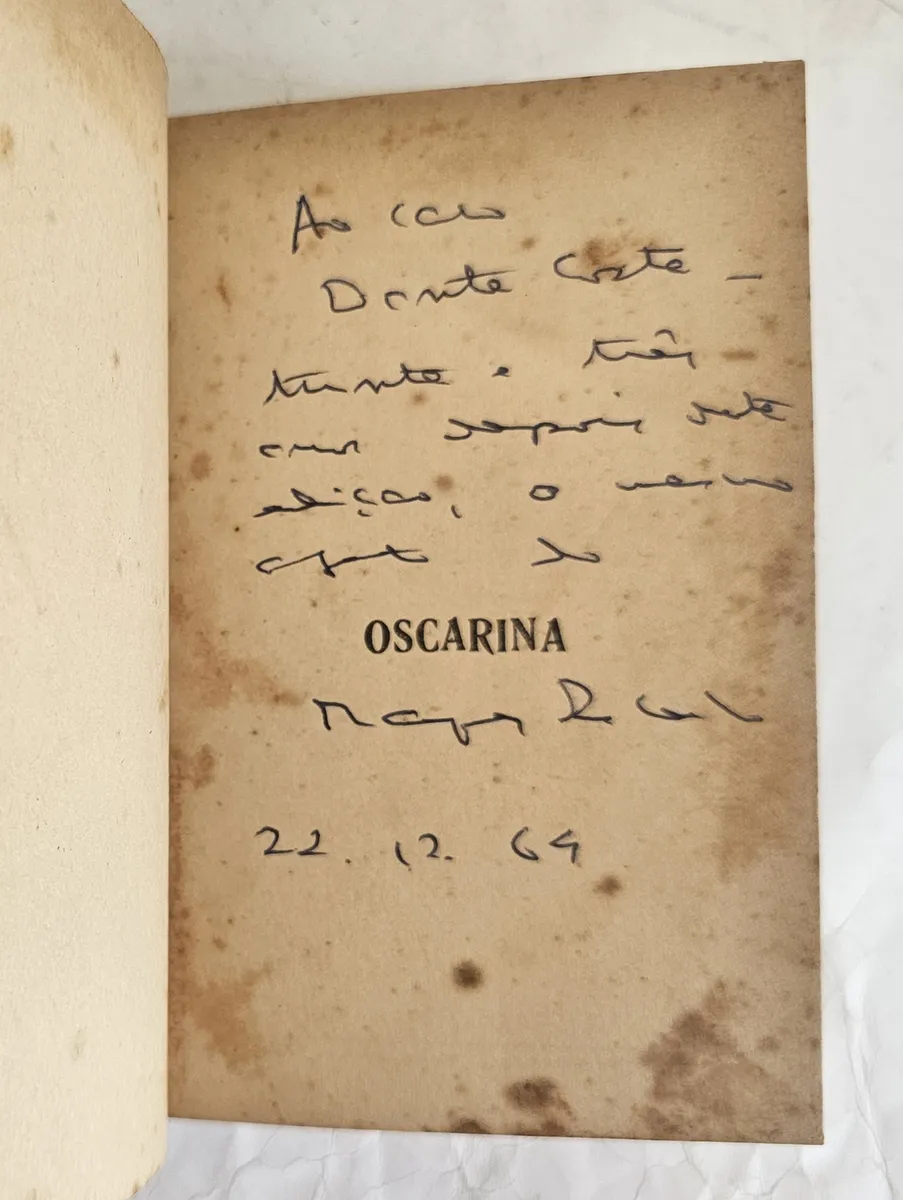 Ao caro
Dante Costa —
trinta e três
anos depois desta
edição, o mesmo
afeto do
OSCARINA
Marques Rebelo
22.12.64